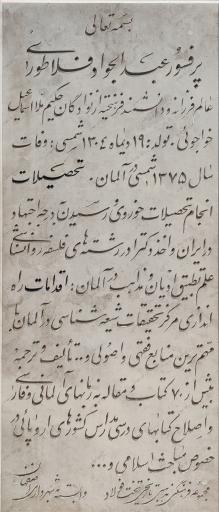 بسمه تعالی
پرفسور عبدالجواد فلاطوری
عالم فرزانه و دانشمند فرزیخته از نوادگان حکیم ملا اسماعیل
خواجوئی. تولد: ۱۹ دیماه ۱۳۰۴ شمسی؛ وفات
سال ۱۳۷۵ شمسی در آلمان. تحصیلات
انجام تحصیلات حوزوی و رسیدن به درجه اجتهاد
در ایران و اخذ دکترا در رشته های فلسفه، روانشناسی
علم تطبیق ادیان و مذاهب در آلمان؛ اقدامات راه
اندازی مرکز تحقیقات شیعه شناسی در آلمان با
مهم ترین منابع فقهی و اصولی و... تألیف و ترجمه
بیش از ۷۰ کتاب و مقاله به زبانهای آلمانی و فارسی
و اصلاح کتابهای درسی مدارس کشورهای اروپائی در
خصوص مباحث اسلامی و...
مجموعه فرهنگی مذهبی تاریخی تخت فولاد وابسته به شهرداری اصفهان